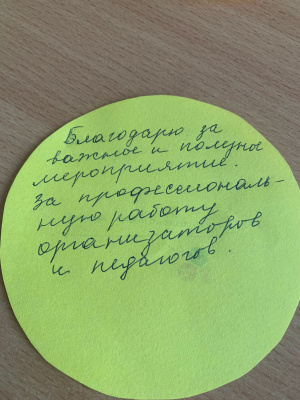 Благодарю за
важное и полезное
мероприятие.
За профессиональ-
ную работу
организаторов
и педагогов.